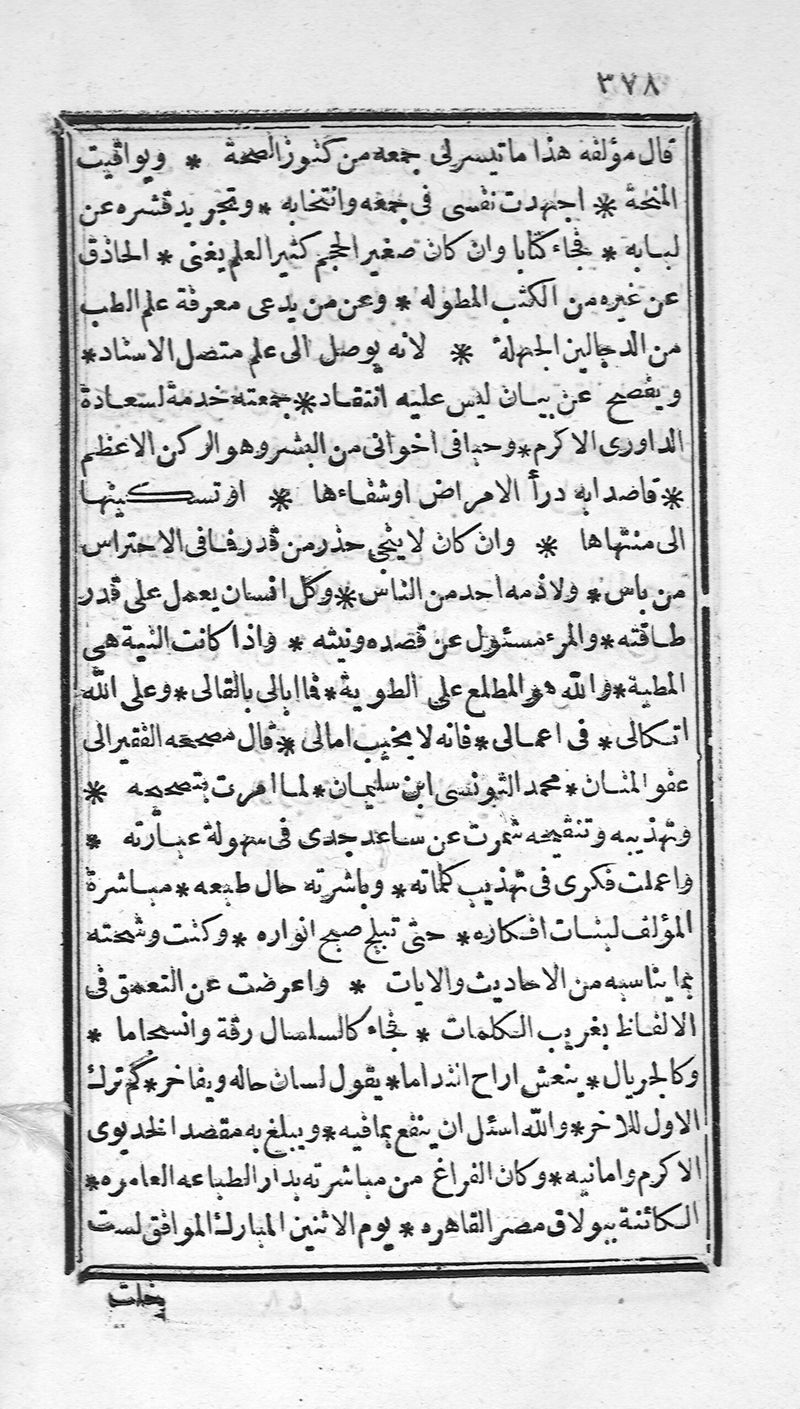 ٣٧٨
قال مؤلفه هذا ما تيسر لى جمعه من كنوز الصحة * ويواقيت
المنحة * اجهدت نفسى فى جمعه وانتخابه * وتجريد قشره عن
لبابه * فجاء كتابا وان كان صغير الحجم كثير العلم يغنى * الحاذق
عن غيره من الكتب المطوله * وعن من يدعى معرفة علم الطب
من الدجالين الجهلة * لانه يوصل الى علم متصل الاسناد *
ويفصح عن بيان ليس عليه انتقاد * جمعته خدمة لسعادة
الداورى الاكرم * وحبا فى اخوانى من البشر وهو الركن الاعظم
* قاصدا به درأ الامراض او شفاءها * او تسكينها
الى منتهاها * وان كان لا ينجى حذر من قدر فما فى الاحتراس
من باس * ولا ذمه احد من الناس * وكل انسان يعمل على قدر
طاقته * والمرء مسئول عن قصده ونيته * واذا كانت النية هى
المطية * والله هو المطلع على الطوية * فما ابالى بالقالى * وعلى الله
اتكالى * فى اعمالى * فانه لا يخيب امالى * قال مصححه الفقير الى
عفو المنان * محمد التونسى ابن سليمان * لما امرت بتصحيحه *
وتهذيبه وتنقيحه شمرت عن ساعد جدى فى سهولة عبارته *
واعملت فكرى فى تهذيب كلماته * وباشرته حال طبعه * مباشرة
المؤلف لبنات افكاره * حتى تبلج صبح انواره * وكنت وشحته
بما يناسبه من الاحاديث والايات * واعرضت عن التعمق فى
الالفاظ بغريب الكلمات * فجاء كالسلسال رقة وانسجاما *
وكالجريال * ينعش اراح انتداما * يقول لسان حاله ويفاخر * كم ترك
الاول للاخر * والله اسئل ان ينفع بما فيه * ويبلغ به مقصد الخديوى
الاكرم وامانيه * وكان الفراغ من مباشرته بدار الطباعه العامره *
الكائنة ببولاق مصر القاهره * يوم الاثنين المبارك الموافق لست
خلت